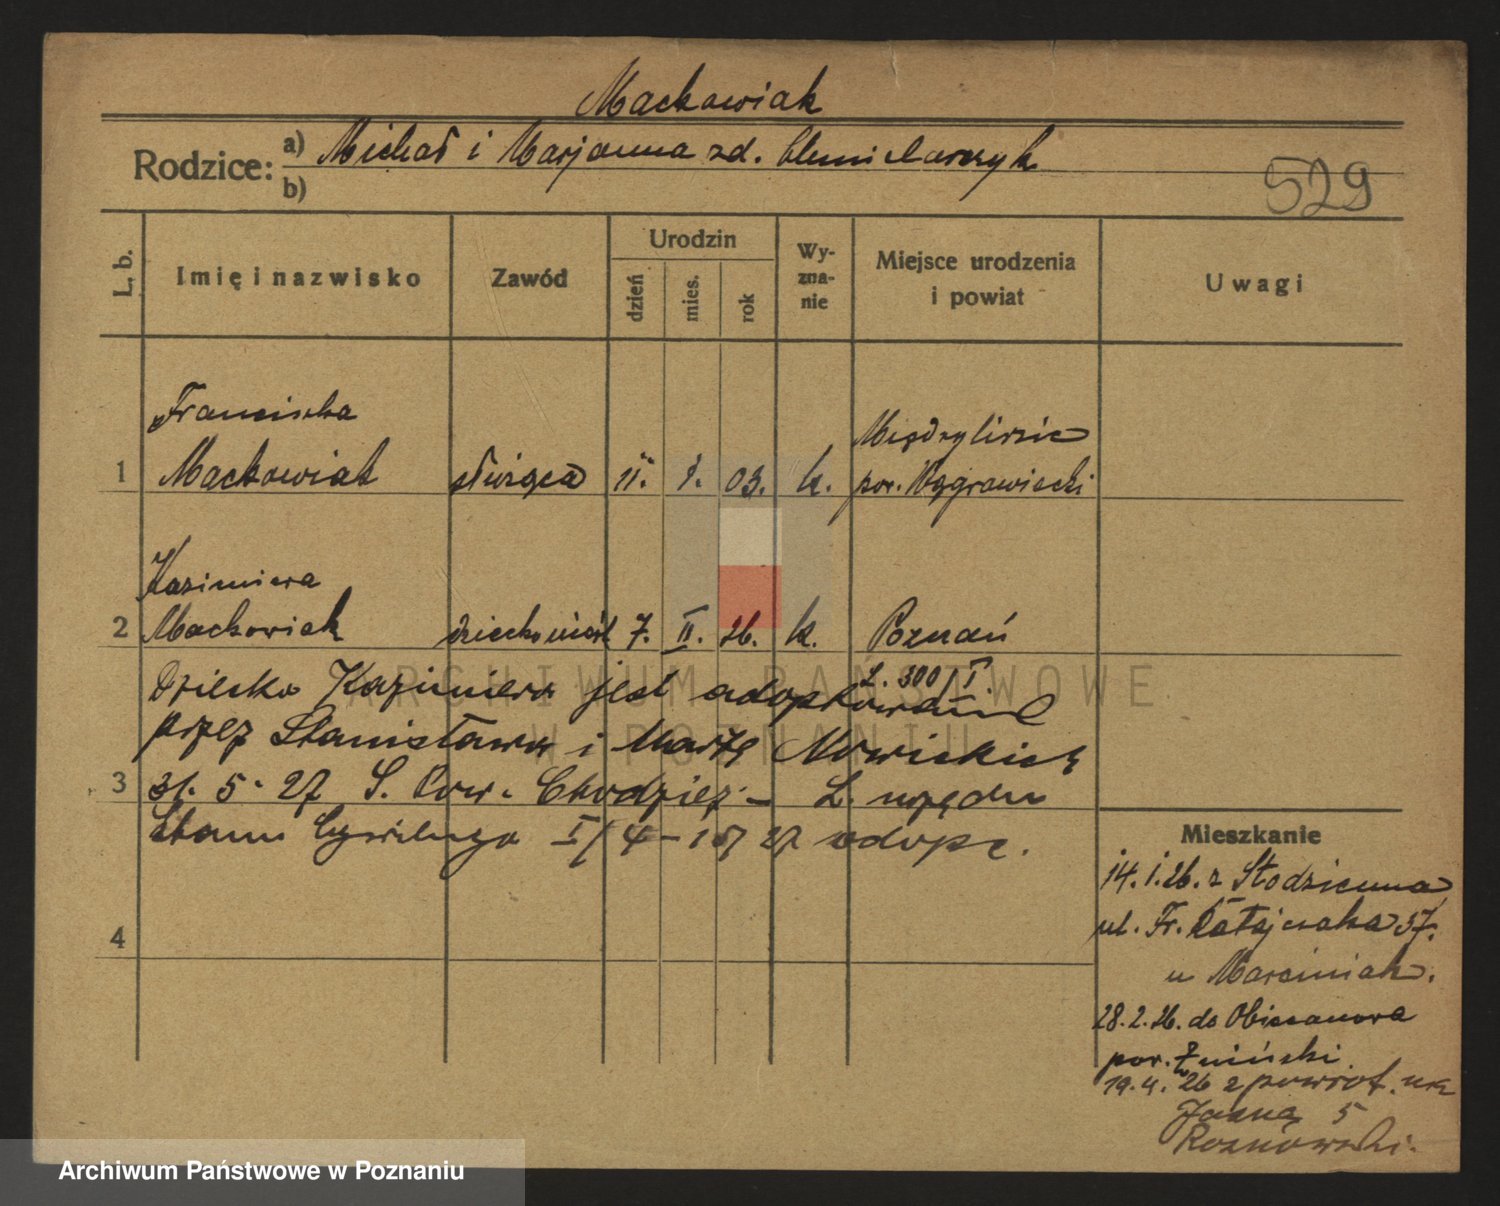 Mackowiak
Rodzice: a) Michał i Marjanna zd. Chmielarczyk
b)
529
L. b.
Imię i nazwisko
Zawód
Urodzin
dzień
mies.
rok
Wy-
zna-
nie
Miejsce urodzenia
i powiat
Uwagi
Franciszka
1 Mackowiak służąca 11. 03. k.
Międzylisie
pow. Wągrowiecki
Kazimiera
2 Mackowiak dziecko 7. II. 26. k. Poznań
L. 300/I.
Dziecko Kazimiera jest adoptowane
przez Stanisława i Martę Nowickich
3 31. 5. 27 S. Pow. Chodzież – L. urzędu
Stanu Cywilnego I/4–15/27 adopc.
4
Mieszkanie
14. 1. 26. z Stodzienna
ul. Fr. Ratajczaka 37.
u Marciniak.
28. 2. 26. do Obiecanowa
pow. Żniński
19. 4. 26 z powrot. na
Jasną 5
Roznowski.
ARCHIWUM PAŃSTWOWE
W POZNANIU
Archiwum Państwowe w Poznaniu